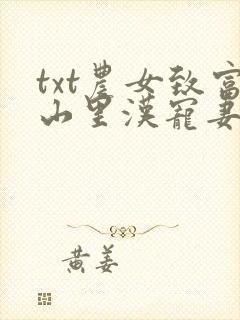 txt農女致富
山里漢寵妻
黄姜